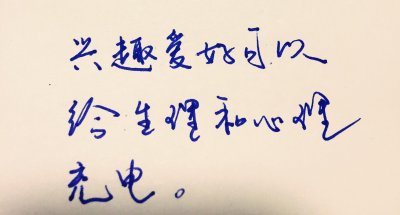 兴趣爱好可以
给生理和心理
充电。